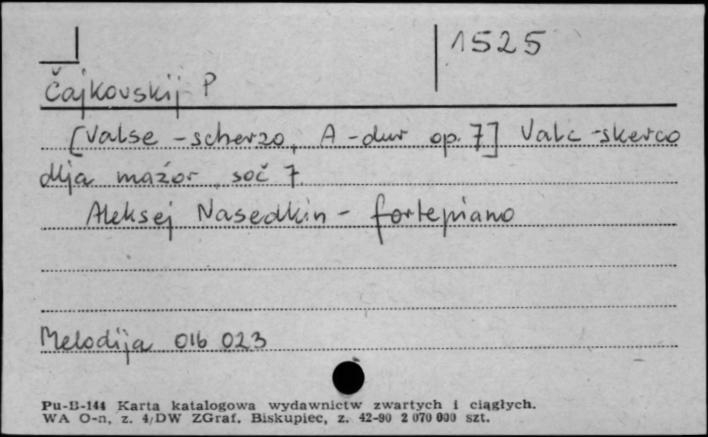 1525
Čajkovskij P
[Valse - scherzo, A - dur op. 7] Valc - skerco
dlja mažor, soč 7
Aleksej Nasedkin - fortepiano
Melodija 016 023
Pu-B-144 Karta katalogowa wydawnictw zwartych i ciągłych.
WA O-n, z. 4/DW ZGraf. Biskupiec, z. 42-90 2 070 000 szt.